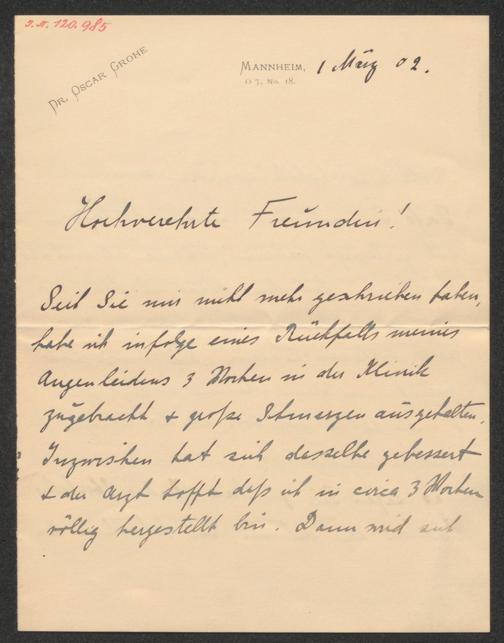 I. N. 120.985
Dr. Oscar Grohe
Mannheim,
O 7. No. 18.
1 März 02.
Hochverehrte Freundin!
Seit Sie mir nicht mehr geschrieben haben,
habe ich infolge eines Rückfalls meines
Augenleidens 3 Wochen in der Klinik
zugebracht & große Schmerzen ausgehalten.
Inzwischen hat sich dasselbe gebessert
& der Arzt hofft daß ich in circa 3 Wochen
völlig hergestellt bin. Dann wird sich